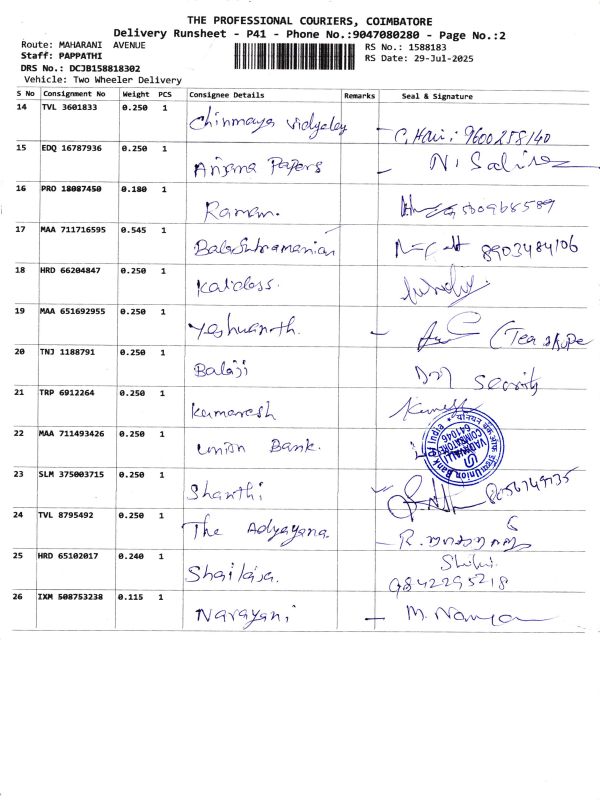 THE PROFESSIONAL COURIERS, COIMBATORE
Delivery Runsheet - P41 - Phone No.:9047080280 - Page No.:2
Route: MAHARANI AVENUE
RS No.: 1588183
Staff: PAPPATHI
RS Date: 29-Jul-2025
DRS No.: DCJB158818302
Vehicle: Two Wheeler Delivery
S No Consignment No Weight PCS Consignee Details Remarks Seal & Signature
14 TVL 3601833 0.250 1 Chinmaya vidyalay C. Hari: 9600258140
15 EDQ 16787936 0.250 1 Anjana Papers N.
16 PRO 18087450 0.180 1 Raman.
17 MAA 711716595 0.545 1 BalaSubramanian 8903484106
18 HRD 66204847 0.250 1
19 MAA 651692955 0.250 1 Yeshwanth.
20 TNJ 1188791 0.250 1 Balaji Security
21 TRP 6912264 0.250 1 Kumaresh
22 MAA 711493426 0.250 1 Union Bank. Union Bank of India VADAVALLI COIMBATORE 641046
23 SLM 375003715 0.250 1 Shanthi
24 TVL 8795492 0.250 1 The Adyayana. R.
25 HRD 65102017 0.240 1 Shailaja. 9842295218
26 IXM 508753238 0.115 1 Narayani M.